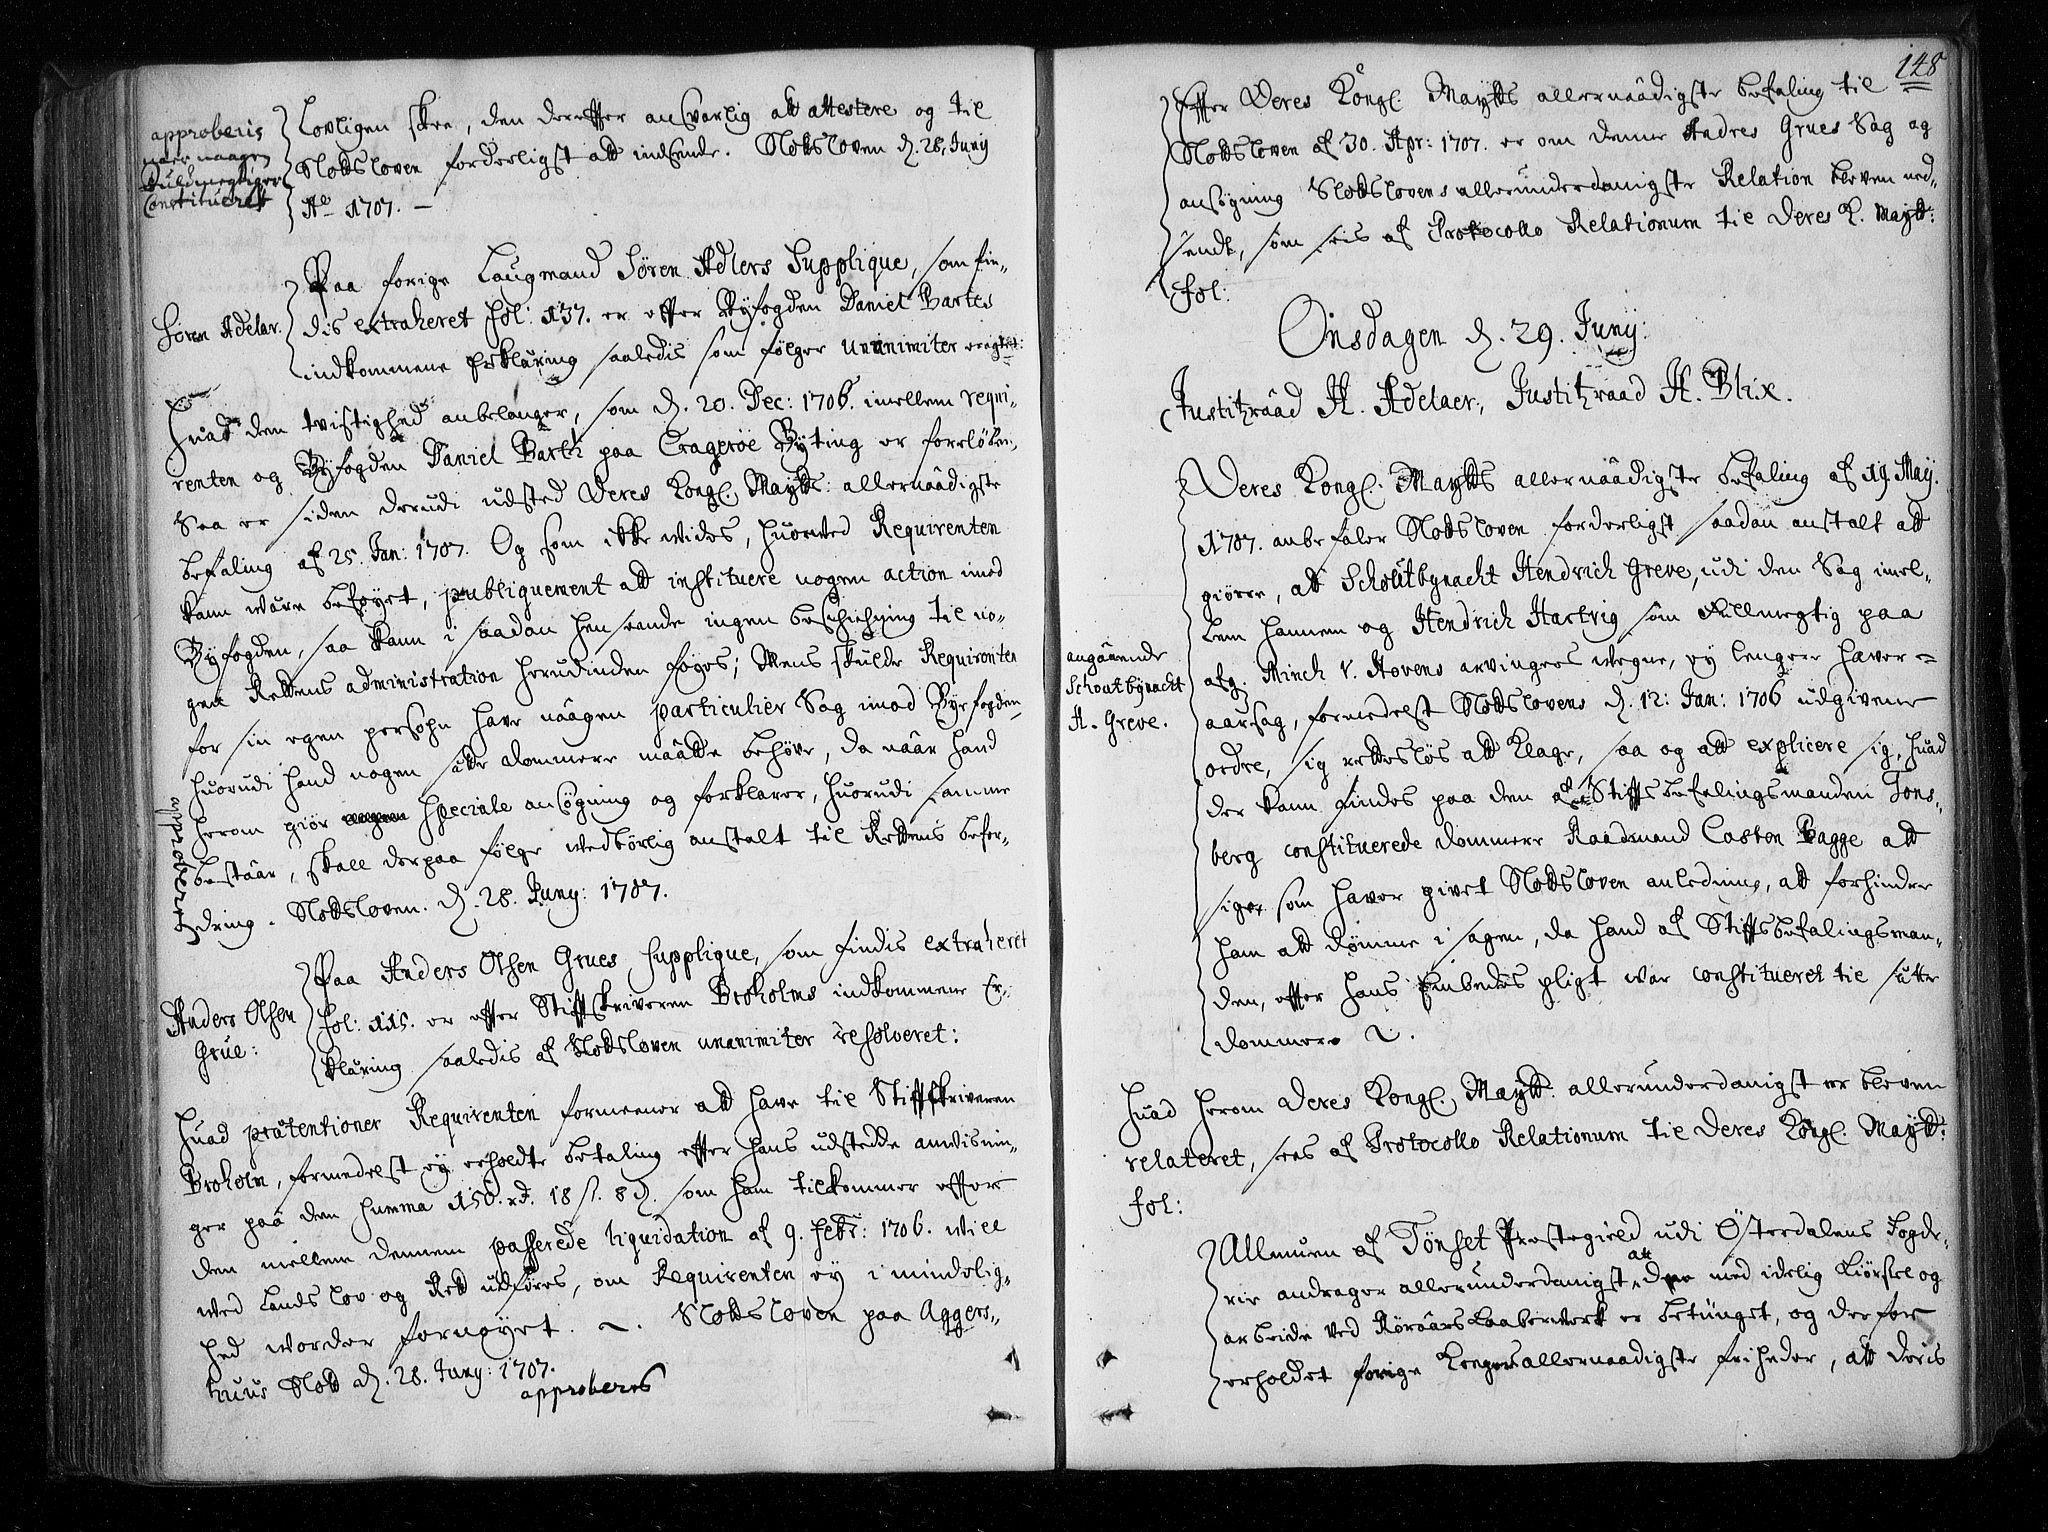 approberis
naar naagen
Fuldmegtiger
Constitueret
Lovligen skee, den derefter ansvarlig att attestere og til
Slottsloven forderligst att indsende. Slottsloven d. 28, Juny
Ao 1707. —
Søren Adelar.
Paa forige Laugmand Søren Adlers Supplique, som fin-
dis extraheret fol: 137. er efter Byfogden Daniel Bartes
indkommene Erklæring saaledis som følger unanimiter eragtet:
Huad den tvistighed anbelanger, som d. 20. Dec: 1706. imellem requi-
renten og Byfogden Daniel Barth paa Cragerøe Byting er foreløben,
Saa er siden derudi udsted Deres Kongl. Maytts: allernaadigste
befaling af 25. Jan: 1707. Og som ikke vides, huorved Requirenten
kann være beføyet, publiquement att instituere nogen action imod
Byfogden, saa kann i saadan henseende ingen beschichning til no-
gen Rettens administration herudinden føyes; Mens skulde Requirenten
for sin egen persohn have naagen particulier Sag imod Byefogden,
huorudi hand nogen sætte dommere maatte behøve, da naar hand
herom giør speciale ansøgning og forklarer, huorudi samme
bestaar, skall derpaa følge vedbørlig anstalt til Rettens befor-
dring. Slottsloven. d. 28. Juny: 1707.
approberes
Anders Olsen
Grue:
Paa Anders Olsen Grues Supplique, som findis extraheret
fol: 115. er efter Stiftskriveren Broholms indkommene Er-
klæring saaledis af Slottsloven unanimiter resolveret:
Huad prætentioner Requirenten formeener att have til Stiftskriveren
Broholm, formedelst ey erholdte betaling efter hans udstedde anvisnin-
ger paa den Summa 150. rd. 18 s. 8 d. som ham tilkommer efter
den mellem dennem passerede liquidation af 9. Febr: 1706. vill
ved Lands Lov og Rett udføres, om Requirenten ey i mindelig-
hed vorder fornøyet. —. Slottsloven paa Aggers-
huus Slott d. 28. Juny: 1707.
approberes
148
Efter Deres Kongl. Maytts allernaadigste befaling til
Slottsloven af 30. Apr: 1707. er om denne Andres Grues Sag og
ansøgning Slottslovens allerunderdanigste Relation bleven ned-
sendt, som sees af Protocollo Relationum til Deres K. Maytt:
fol:
Onsdagen d. 29. Juny:
Justitzraad H. Adelaer, Justitzraad H. Blix.
angaaende
Schoutbynacht
H. Greve.
Deres Kongl. Maytts allernaadigste befaling af 19. May.
1707. anbefaler Slottsloven forderligst saadan anstalt att
giøre, att Schoutbynacht Hendrich Greve, udi den Sag imel-
lem hannem og Hendrich Hartvig som Fullmegtig paa
afg. Minch v. Hovens arvingers vegne, ey lengere haver
aarsag, formedelst Slottslovens d. 12: Jan: 1706 udgivene
ordre, sig rettesløs att klage, saa og att explicere sig, huad
der kann findes paa den af Stiftsbefalingsmanden i Tons-
berg constituerede dommere Raadmand Casten Bagge att
sige som haver givet Slottsloven anledning, att forhindre
ham att dømme i sagen, da hand af Stiftsbefalingsman-
den, efter hans Embedes pligt var constitueret til sætte
dommere
Huad herom Deres Kongl. Maytt: allerunderdanigst er bleven
relateret, sees af Protocollo Relationum til Deres Kongl. Maytt:
fol:
Allmuen af Tønset Prestegield udi Østerdalens Fogde-
rie andrager allerunderdanigst, att de med idelig Kiørsel og
arbeide ved Røraas Kaaberverk er betunget, og derfor
erholdet forige Kongers allernaadigste friheder, att deris